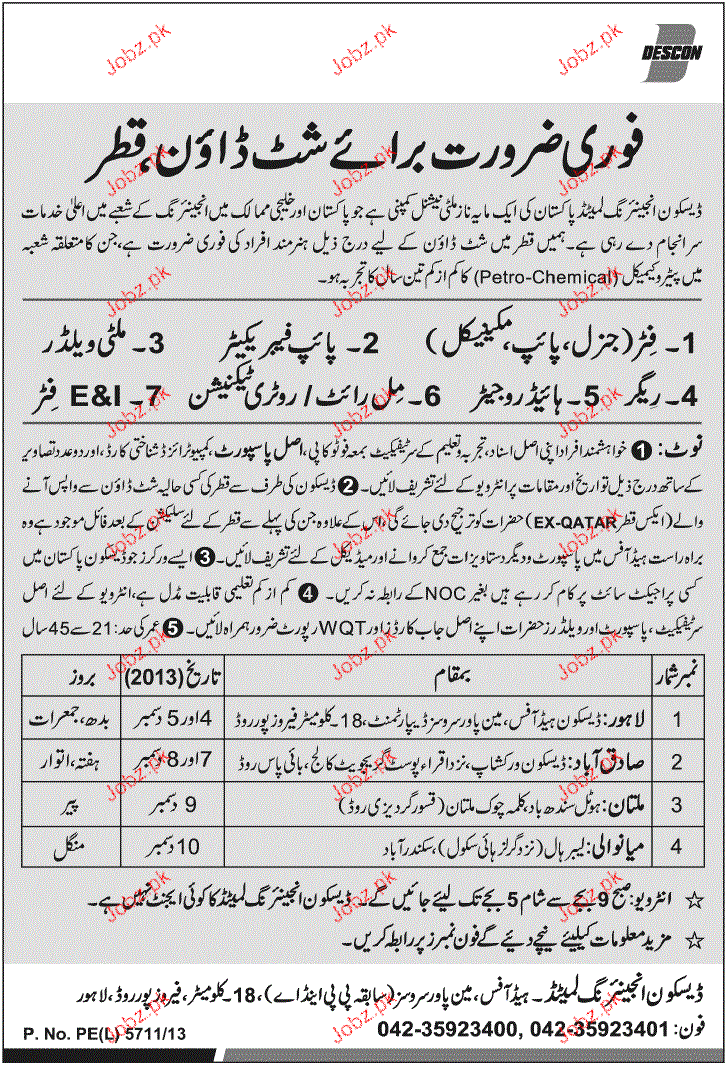 DESCON
فوری ضرورت برائے شٹ ڈاؤن، قطر
ڈیسکون انجینئرنگ لمیٹڈ پاکستان کی ایک مایہ ناز ملٹی نیشنل کمپنی ہے جو پاکستان اور خلیجی ممالک میں انجینئرنگ کے شعبے میں اعلیٰ خدمات
سرانجام دے رہی ہے۔ ہمیں قطر میں شٹ ڈاؤن کے لیے درج ذیل ہنرمند افراد کی فوری ضرورت ہے، جن کا متعلقہ شعبہ
میں پیٹروکیمیکل (Petro-Chemical) کا کم از کم تین سال کا تجربہ ہو۔
1۔ فِٹر (جنرل، پائپ، مکینیکل) 2۔ پائپ فیبریکیٹر 3۔ ملٹی ویلڈر
4۔ رِیگر 5۔ ہائیڈروجیٹر 6۔ مِل رائٹ / روٹری ٹیکنیشن 7۔ E&I فِٹر
نوٹ: 1 خواہشمند افراد اپنی اصل اسناد، تجربہ و تعلیم کے سرٹیفکیٹ بمعہ فوٹو کاپی، اصل پاسپورٹ، کمپیوٹرائزڈ شناختی کارڈ، اور دو عدد تصاویر
کے ساتھ درج ذیل تواریخ اور مقامات پر انٹرویو کے لئے تشریف لائیں۔ 2 ڈیسکون کی طرف سے قطر کی کسی حالیہ شٹ ڈاؤن سے واپس آنے
والے (ایکس قطر EX-QATAR) حضرات کو ترجیح دی جائے گی، اس کے علاوہ جن کی پہلے سے قطر کے لئے سلیکشن کے بعد فائل موجود ہے وہ
براہ راست ہیڈ آفس میں پاسپورٹ و دیگر دستاویزات جمع کروانے اور میڈیکل کے لئے تشریف لائیں۔ 3 ایسے ورکرز جو ڈیسکون پاکستان میں
کسی پراجیکٹ سائٹ پر کام کر رہے ہیں بغیر NOC کے رابطہ نہ کریں۔ 4 کم از کم تعلیمی قابلیت مڈل ہے، انٹرویو کے لئے اصل
سرٹیفکیٹ، پاسپورٹ اور ویلڈرز حضرات اپنے اصل جاب کارڈز اور WQT رپورٹ ضرور ہمراہ لائیں۔ 5 عمر کی حد: 21 سے 45 سال
نمبر شمار بمقام تاریخ (2013) بروز
1 لاہور: ڈیسکون ہیڈ آفس، مین پاور سروسز ڈیپارٹمنٹ، 18۔ کلومیٹر فیروز پور روڈ 4 اور 5 دسمبر بدھ، جمعرات
2 صادق آباد: ڈیسکون ورکشاپ، نزد اقراء پوسٹ گریجویٹ کالج، بائی پاس روڈ 7 اور 8 دسمبر ہفتہ، اتوار
3 ملتان: ہوٹل سندھ باد، کلمہ چوک ملتان (قسور گردیزی روڈ) 9 دسمبر پیر
4 میانوالی: لیبر ہال (نزد گرلز ہائی سکول)، سکندر آباد 10 دسمبر منگل
☆ انٹرویو: صبح 9 بجے سے شام 5 بجے تک لیئے جائیں گے۔ ڈیسکون انجینئرنگ لمیٹڈ کا کوئی ایجنٹ نہیں ہے۔
☆ مزید معلومات کیلیئے نیچے دیئے گے فون نمبرز پر رابطہ کریں۔
ڈیسکون انجینئرنگ لمیٹڈ۔ ہیڈ آفس، مین پاور سروسز (سابقہ پی پی اینڈ اے)، 18۔ کلومیٹر، فیروز پور روڈ، لاہور
فون: 042-35923400, 042-35923401
P. No. PE(L) 5711/13
Jobz.pk